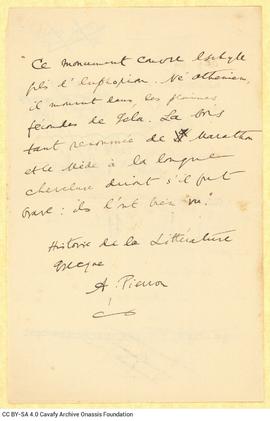 "Ce monument couvre Eschyle
fils d'Euphorion. Né Athénien,
il mourut dans les plaines
fécondes de Gela. Le bois
tant renommé de Marathon
et le Mède à la longue
chevelure diront s'il fut
brave: ils l'ont bien vu."
Histoire de la Littérature
Grecque
A. Pierron
CC BY-SA 4.0 Cavafy Archive Onassis Foundation